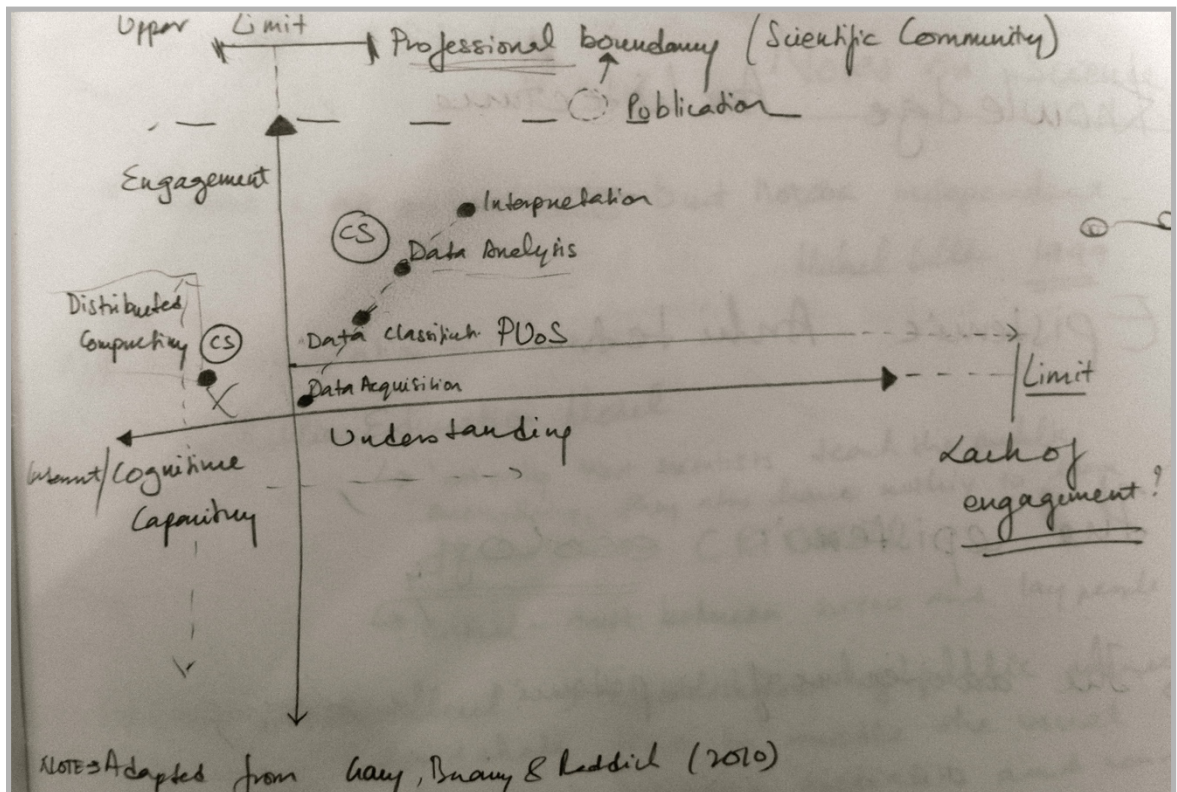 Upper Limit
Professional boundary (Scientific Community)
Publication
Engagement
Interpretation
CS
Data Analysis
Distributed
Computing
CS
Data Classificat. PUoS
Data Acquisition
Limit
Understanding
Lack of
engagement?
/Cognitive
Capacity
NOTE: Adapted from , & Reddick (2010)